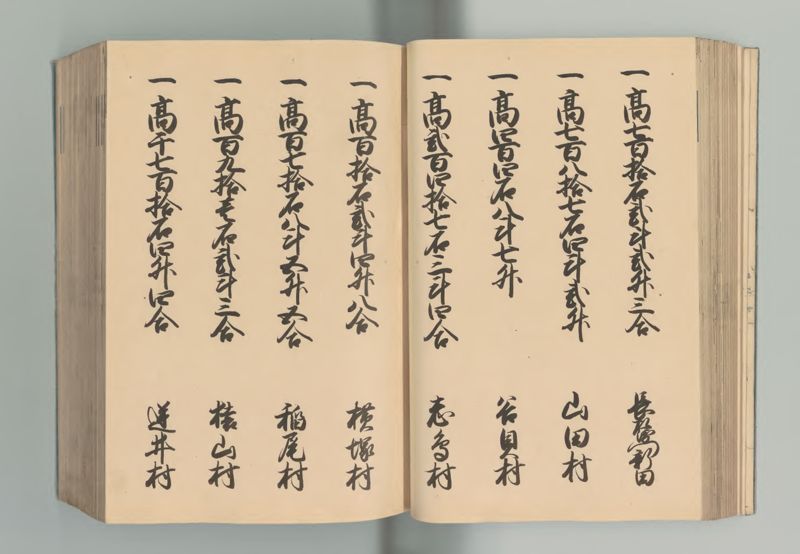 一高七百拾石弐斗弐升三合 長左衛門新田
一高七百八拾七石四斗弐升 山田村
一高四百四石八斗七升 谷貝村
一高弐百四拾七石三斗四合 志鳥村
一高百拾石弐斗四升八合 横塚村
一高百七拾石八斗五升五合 稲尾村
一高百九拾壱石弐斗三合 山村
一高千七百拾石四升四合 逆井村